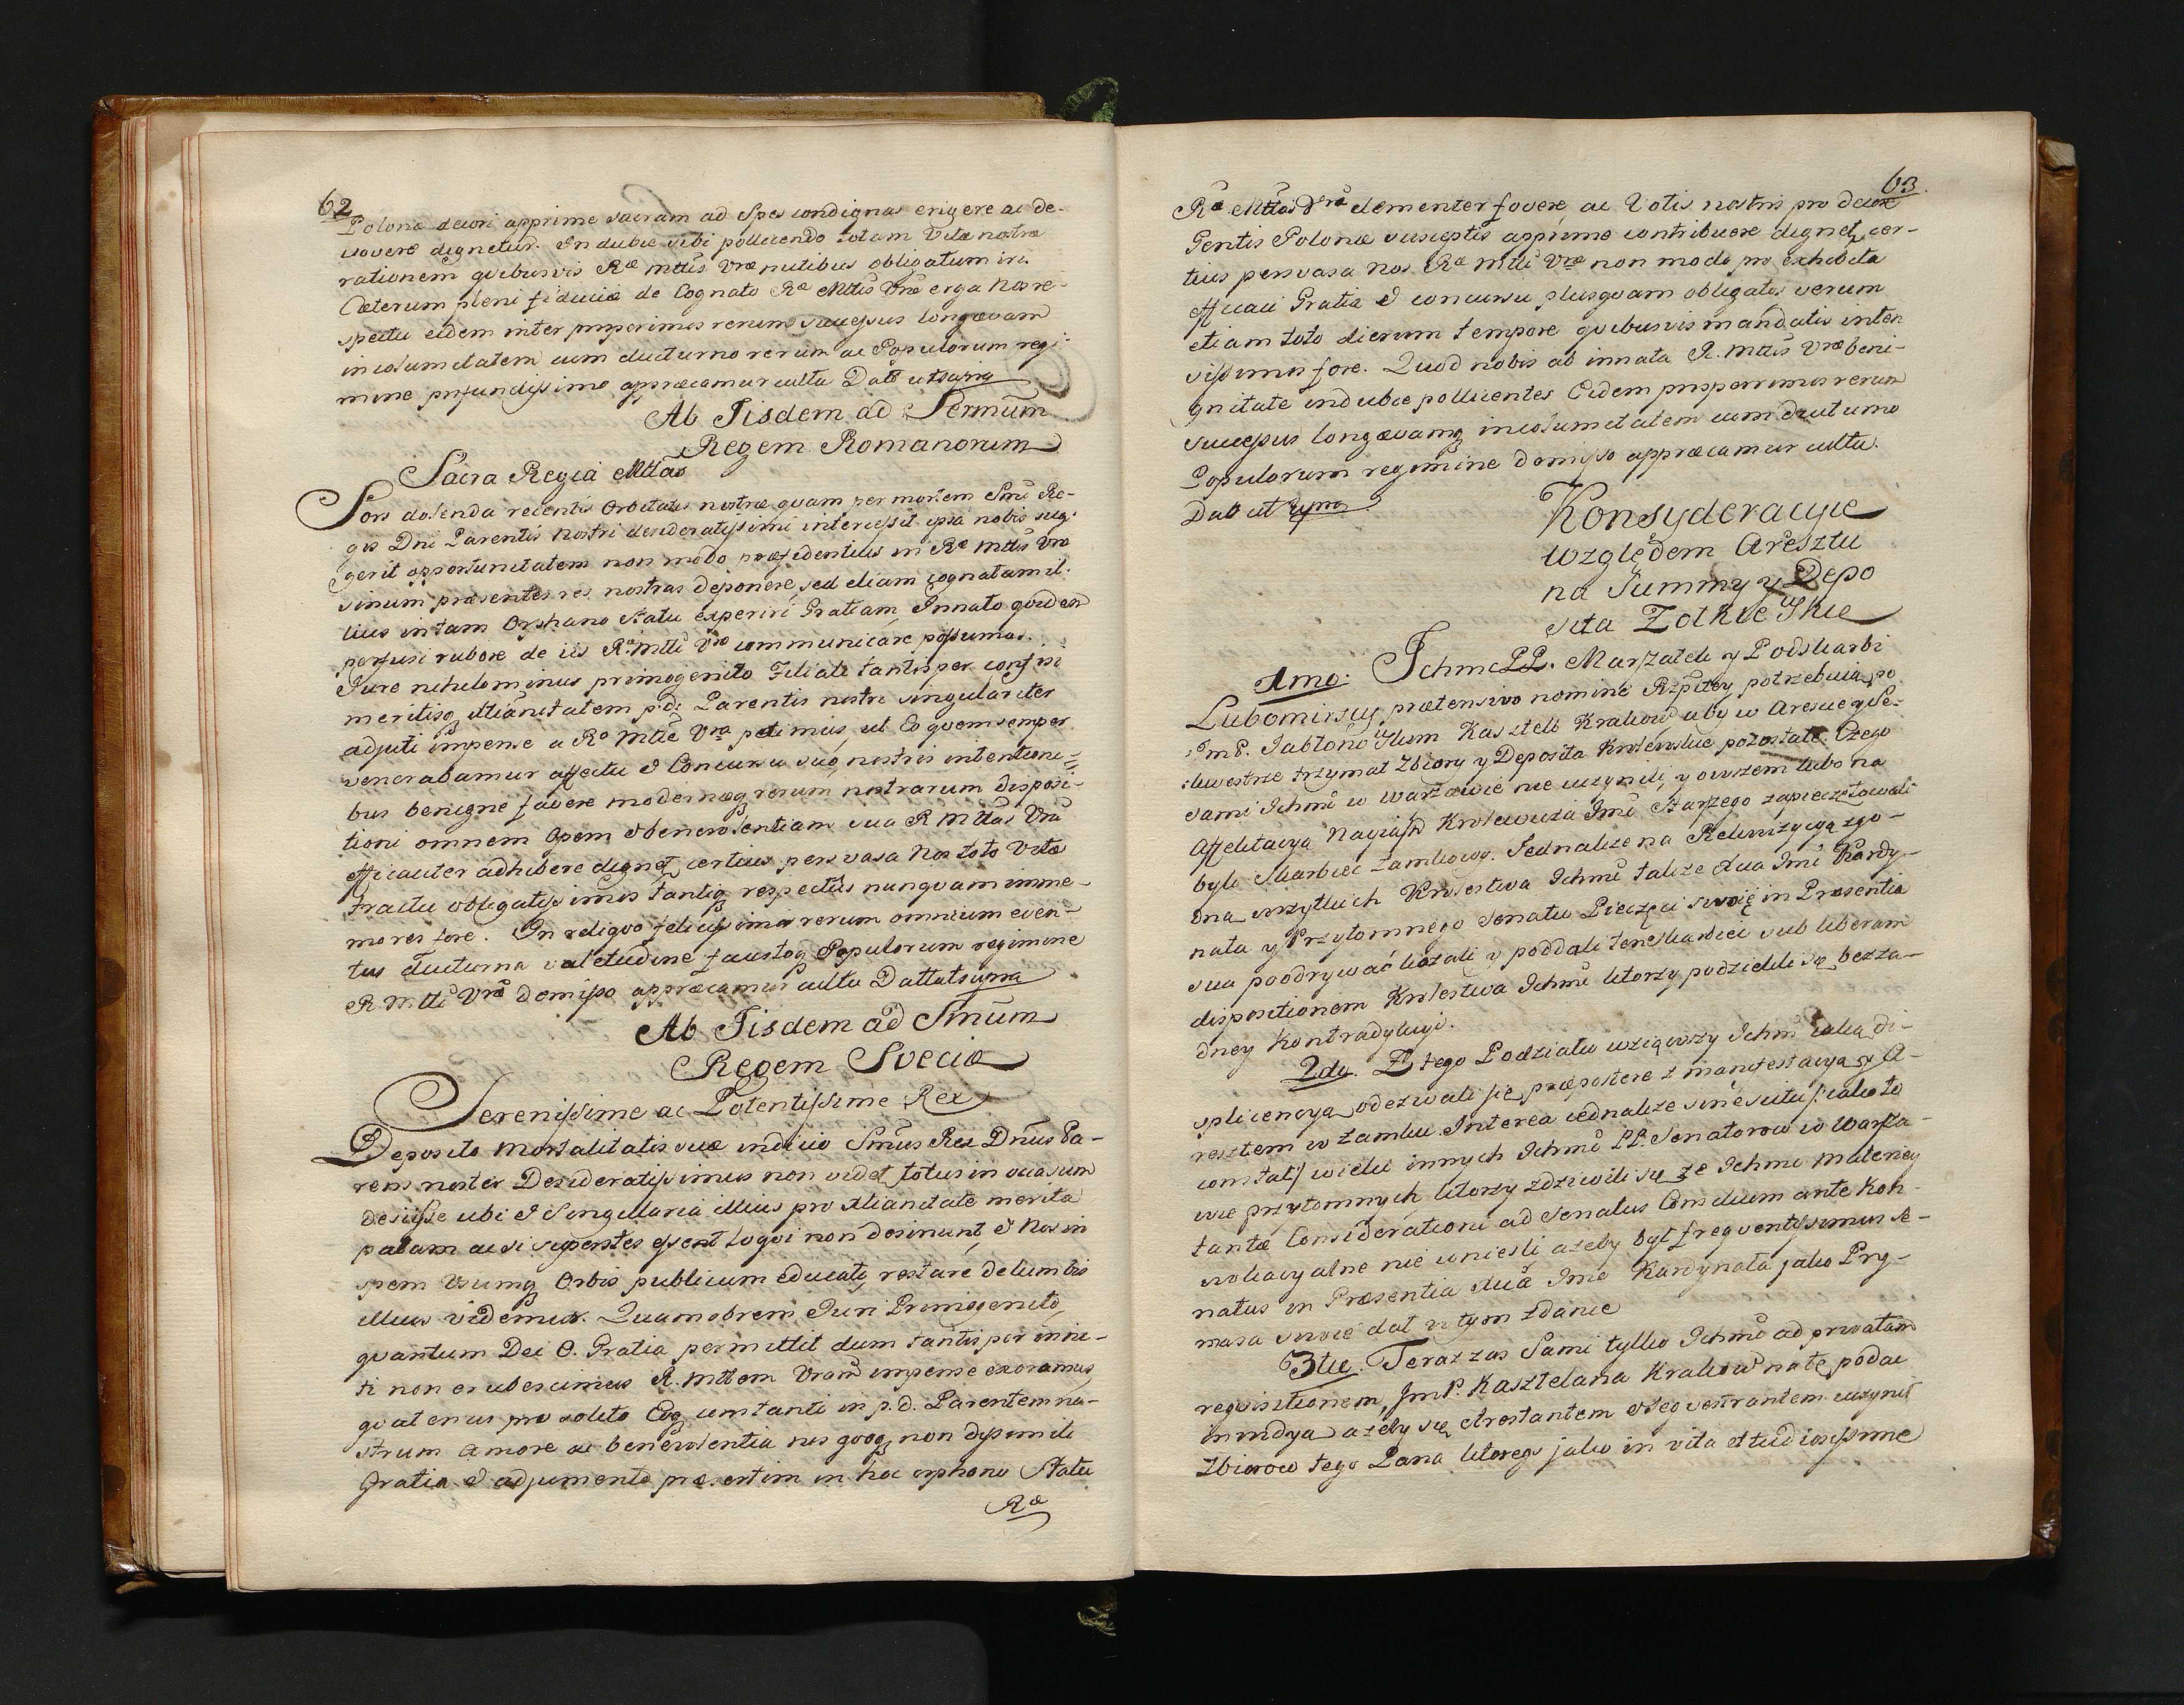 62
Polonæ decori apprime sacram ad Spes condignas erigere ac de-
vovere dignetur. Indubie sibi pollicendo totam Vitæ nostræ
rationem quibusvis Ræ Mttis Vræ nutibus obligatum iri.
Cæterum pleni fiduciæ de Cognato Ræ Mttis Vræ erga Nos re-
spectu eidem inter prosperimos rerum successus longævam
incolumitatem cum diuturno rerum ac Populorum regi-
mine profundissimo appræcamur cultu Datt ut supra
Ab Iisdem ad Sermūm
Regem Romanorum
Sacra Regia Mttas
Sors dolenda recentis Orbitatis nostræ quam per mortem Smi Re-
gis Dni Parentis Nostri desideratissimi intercessit ipsa nobis sug-
gerit opportunitatem non modo præfidentius in Ræ Mttis Vræ
sinum præsentes res nostras deponere, sed etiam cognatam il-
lius in tam Orphano Statu experiri Gratiam, Innato quidem
perfusi rubore de iis Ræ Mtti Vræ communicare possumus.
Jure nihilominus primogenito Filiali tantisper confisi
meritisq Xtianitatem p.d: Parentis nostri singulariter
adjuti impense a Ræ Mtte Vra petimus, ut Eo quem semper
venerabamur affectu & Concursu suo, nostris intentioni-
bus benigne favere modernæq rerum nostrarum disposi-
tioni omnem Opem & benevolentiam sua R Mttas Vra
efficaciter adhibere dignet, certius persvasa Nos toto Vitæ
tractu obligatissimos tantiq respectūs nunquam imme-
mores fore. In reliquo felicissimos rerum omnium even-
tus diuturna valetudine faustoq Populorum regimine
R Mtti Vræ demisso appræcamur cultu Datt ut supra
Ab Iisdem ad Smūm
Regem Sveciæ
Serenissime ac Potentissime Rex
Deposito Mortalitatis suæ indicio Smūs Rex Dnūs Pa-
rens noster Desideratissimus non videt totus in occasum
desiisse ubi & Singularia illius pro Xtianitate merita
palam ac si superstes essent loqui non desinunt, & Nos in
spem Usumq Orbis publicum educati, restare de lumbis
illius videmur. Quamobrem Juri Primogenito,
quantum Dei O. Gratia permittit dum tantisper inni-
ti non erubescimus R. Mttem Vram impense exoramus,
quatenus pro solito Eoq constanti in p.d. Parentem no-
strum Amore ac benevolentia nos quoq non dissimili
Gratia & adjumento præsertim in hoc orphano Statu
Ræ
63.
Ræ Mttas Vra clementer fovere, ac Votis nostris pro decore
Gentis Polonæ susceptis apprime contribuere dignet, cer-
tius persvasa nos Ræ Mtti Vræ non modo pro exhibita
efficaci Gratia & concursu plusquam obligatos verum
etiam toto dierum tempore quibusvis mandatis inten
sissimos fore. Quod nobis ab innata R. Mttis Vræ beni-
gnitate indubie pollicentes Eidem prosperrimos rerum
successus longævamq incolumitatem cum diuturno
Populorum regimine demisso appræcamur cultu.
Datt ut supra
Konsyderacye
względem Aresztu
na Summy y Depo
sita Zołkiewskie
1mo: Ichmć PP. Marszałek y Podskarbi
Lubomirscy prætensivo nomine Rzptey potrzebuią po
Jm P. Jabłonowskim Kasztell Krakow aby w Areście y Se-
kwestrze trzymał Zbiory y Deposita Krolewskie pozostałe. Czego
sami Ichmć w Warszawie nie uczynili, y owszem lubo na
Affektacyą Nayiaśn Krolewica Jmć Starszego zapieczętowali
byli Skarbiec Zamkowy. Jednakże na Rekwizycyą zgo-
dną wszytkich Krolestwa Ichmć także Xcia Jmć Kardy-
nała y Przytomnego Senatu Pieczęci swoię in Præsentia
sua poodrywać kazali y poddali ten Skarbiec sub liberam
dispositionem Krolestwa Ichmć ktorzy podzielili się bez ża-
dney Kontradykcyi.
2do. Z tego Podziału wziąwszy Ichmć iakąś di-
splicencyą odezwali się præpostere z manifestacyą y A-
resztem w Zamku. Interea iednakże sine scitu /: iako to
constat:/ wielu innych Ichmć PP. Senatorow w Warsza-
wie przytomnych, ktorzy zdziwili się że Ichmć materiey
tantæ Considerationi ad Senatus Consilium ante Kon-
wokacyalne nie wnieśli ażeby był frequentissimus Se-
natus in Præsentia Xcia Jmć Kardynała jako Pry-
masa swoie dał w tym zdanie
3tie. Teraz zas Sami tylko Ichmć ad privatam
requisitionem, Jm P. Kasztelana Krakow na tę podać
invidyą ażeby się Arestantem & Seqvestrantem uczynił
Zbiorow tego Pana ktorego jako in vita studiosissime